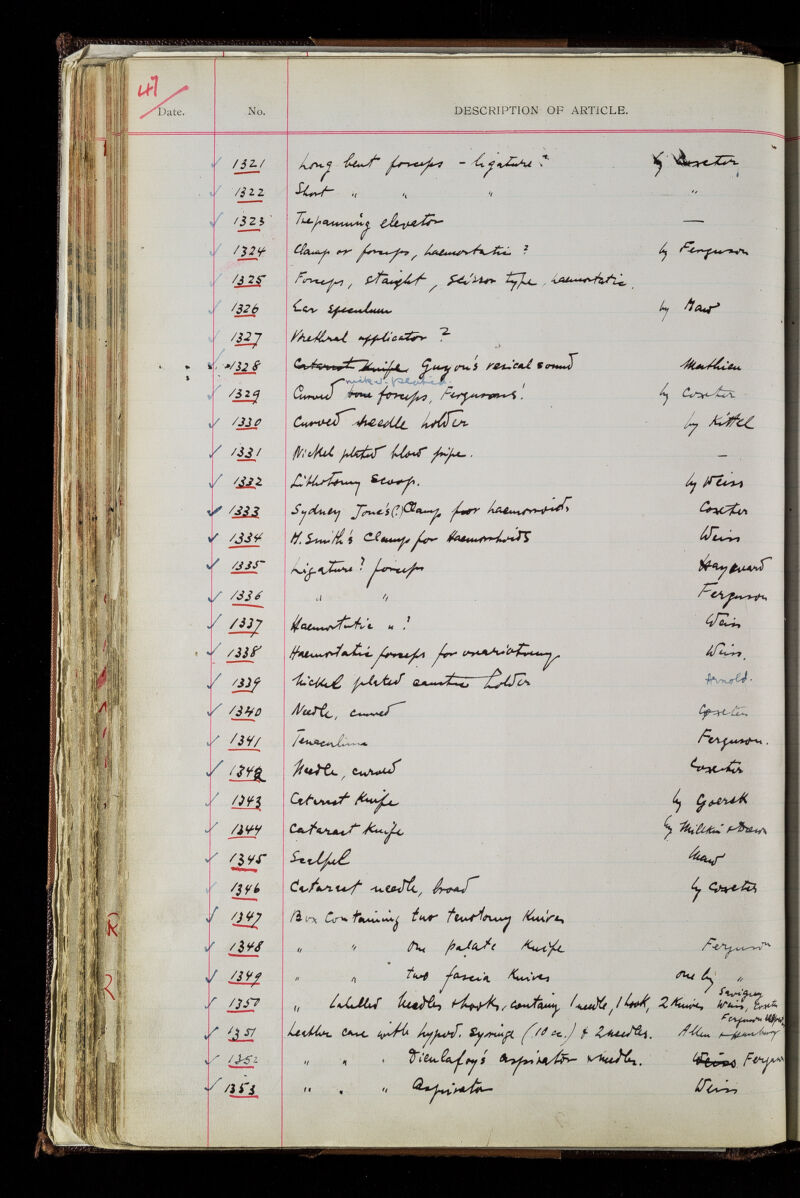 47
Date. No. DESCRIPTION OF ARTICLE.
1321 Long bent forceps - ligature? by Coxeter
1322 Short " " " "
1323 Trepanning elevator —
1324 Clamp or forceps, haemostatic ? by Ferguson
1325 Forceps, staight, scissor type, haemostatic.
1326 Ear speculum by Maw
1327 Urethral applicator ?
1328 Cataract Knife Guyon's vesical sound Mathieu
nickel plated
1329 Curved bone forceps, Fergusons'. by Coxeter
1330 Curved needle holder by Kittel
1331 Nickel plated blow pipe. —
1332 Lithotomy scoop. by Weiss
1333 Sydney Jone's(?) Clamp for haemorroids Coxeter
1334 H. Smith's Clamp for Haemorrhoids Weiss
1335 Ligature? forceps Hayward
1336 " " Ferguson
1337 Haemostatic " ? Weiss
1338 Haemostatic forceps for ovariotomy Weiss.
1339 Nickel plated caustic holder Arnold.
1340 Needle, curved Coxeter
1341 Tenaculum Ferguson.
1342 Needle, curved Coxeter
1343 Cataract Knife by Goersk
1344 Cataract Knife by Millikin & Down
1345 Scalpel Maw
1346 Cataract needle, broad by Coxeter
R 1347 Box Containing two Tenotomy Knives
1348 " " One palate Knife Ferguson
R 1349 " " two fascia Knives one by "
Savigny
1350 " labelled Needles & hooks, containing 1 needle, 1 hook, 2 Knives Weiss, Coxeter
Ferguson
1351 Leather case with hypod. syringe (10 cc.) & 2 needles. Allen & Hanbury
1352 " " " Dieulafoy's aspirator & needles. Weiss Ferguson
1353 " " " Aspirator Weiss